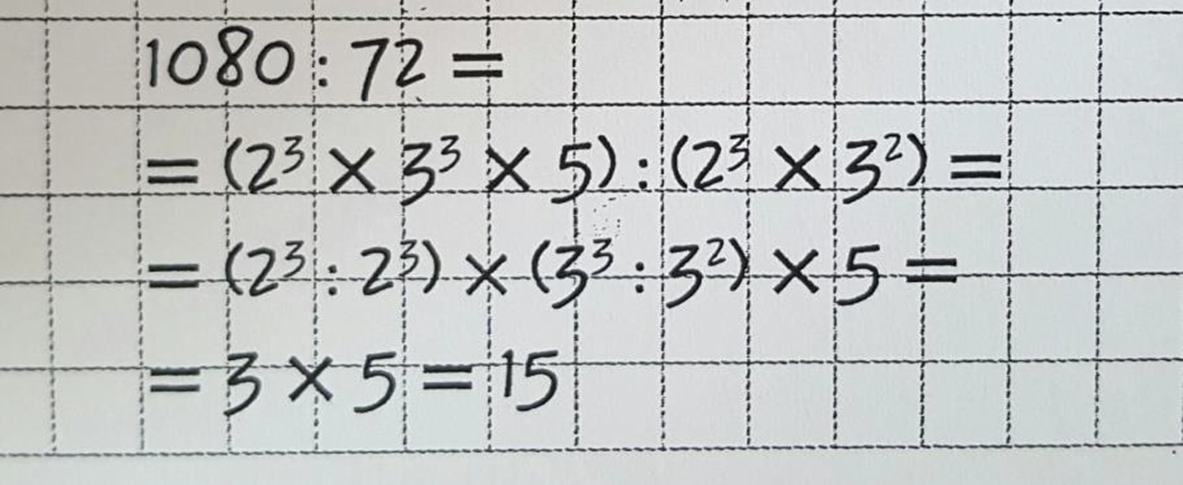 1080 : 72 =
= (2³ × 3³ × 5) : (2³ × 3²) =
= (2³ : 2³) × (3³ : 3²) × 5 =
= 3 × 5 = 15